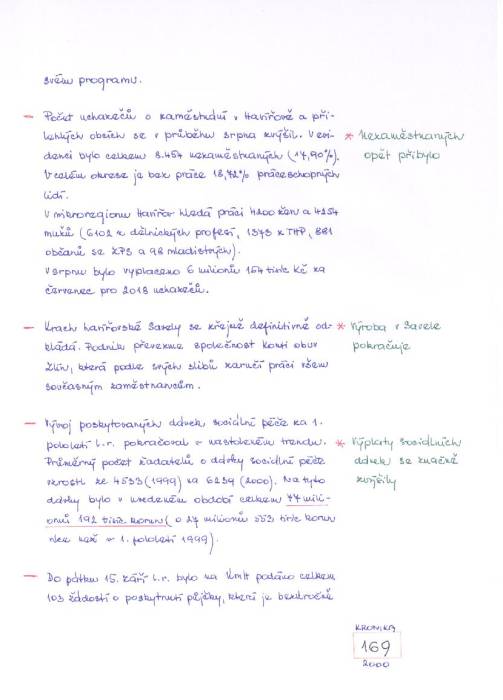 svém programu.
– Počet uchazečů o zaměstnání v Havířově a při-
lehlých obcích se v průběhu srpna zvýšil. V evi-
denci bylo celkem 8.454 nezaměstnaných (17,90%).
V celém okrese je bez práce 18,72% práceschopných
lidí.
V mikroregionu Havířov hledá práci 4200 žen a 4254
mužů (6102 z dělnických profesí, 1373 z THP, 881
občanů se ZPS a 98 mladistvých).
V srpnu bylo vyplaceno 6 milionů 154 tisíc Kč za
červenec pro 2018 uchazečů.
* Nezaměstnaných
opět přibylo
– Krach havířovské Savely se zřejmě definitivně od-
kládá. Podnik převezme společnost Konti obuv
Zlín, která podle svých slibů zaručí práci všem
současným zaměstnancům.
* Výroba v Savele
pokračuje
– Vývoj poskytovaných dávek sociální péče za 1.
pololetí l.r. pokračoval v nastoleném trendu.
Průměrný počet žadatelů o dávky sociální péče
vzrostl ze 4533 (1999) na 6239 (2000). Na tyto
dávky bylo v uvedeném období celkem 77 mili-
onů 192 tisíc korun (o 27 milionů 553 tisíc korun
více než v 1. pololetí 1999).
* Výplaty sociálních
dávek se značně
zvýšily
– Do pátku 15. září l.r. bylo na úmH podáno celkem
103 žádostí o poskytnutí půjčky, která je bezúročně
KRONIKA
169
2000